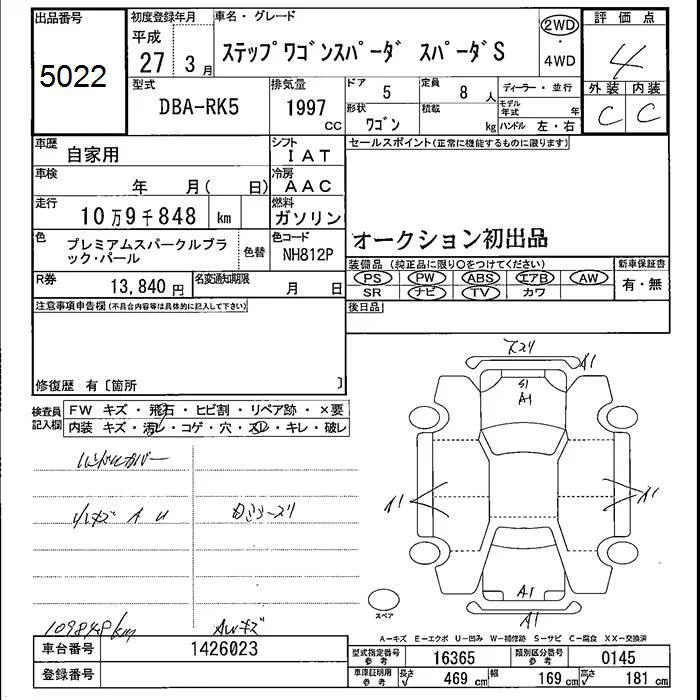 出品番号
5022
初度登録年月
平成
27 3月
車名・グレード
ステップワゴンスパーダ スパーダS
2WD
・
4WD
評価点
4
外装 内装
C C
型式
DBA-RK5
排気量
1997
CC
ドア 5
形状 ワゴン
定員 8 人
積載 kg
ディーラー・並行
モデル年式 年
ハンドル 左・右
車歴 自家用
シフト IAT
車検 年 月( 日)
冷房 AAC
走行 10万9千848 km
燃料 ガソリン
色 プレミアムスパークルブラック・パール
色替
色コード NH812P
R券 13,840 円
名変通知期限 月 日
セールスポイント(正常に機能するものに限ります)
オークション初出品
装備品 (純正品に限り○をつけてください)
PS PW ABS エアB AW
SR ナビ TV カワ
新車保証書
有・無
後日品
注意事項申告欄(不具合内容等は具体的に記入して下さい)
修復歴 有〔箇所 〕
検査員記入欄
FW キズ・飛石・ヒビ割・リペア跡・×要
内装 キズ・汚レ・コゲ・穴・スレ・キレ・破レ
リキズ A U
109848km
AWキズ
スリ
A1
S1
A1
A1
A1
A1
A1
スペア
A-キズ E-エクボ U-凹み W-補修跡 S-サビ C-腐食 XX-交換済
車台番号 1426023
登録番号
型式指定番号 参考 16365
類別区分番号 参考 0145
車庫証明用 参考
長さ √ 469 cm
幅 169 cm
高さ √ 181 cm